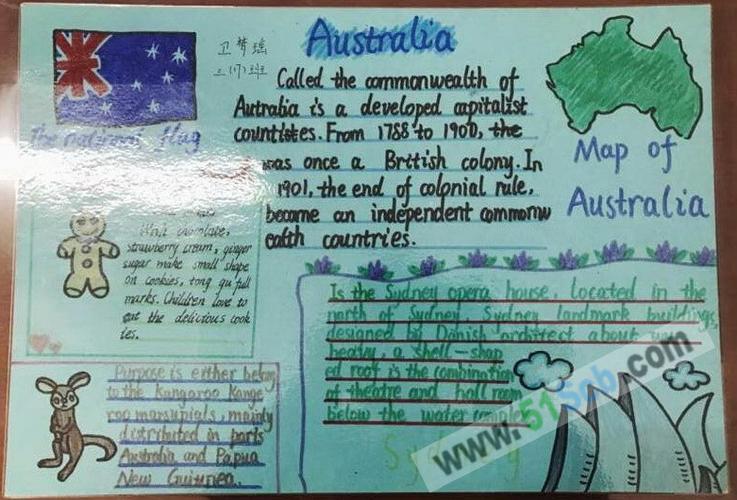 Australia
卫梦瑶
三(17)班
The national flug
Called the commonwealth of
Autralia is a developed capitalist
countistes. From 1788 to 1900, the
was once a British colony. In
1901, the end of colonial rule,
became an independent commonw
ealth countries.
Map of
Australia
chocolate,
strawberry cream, ginger
sugar make small shape
on cookies, tong qu full
marks. Children love to
eat the delicious cook
ies.
Is the Sydney opera house. Located in the
north of Sydney, Sydney landmark buildings,
designed by Danish architect about
a shell-shap
ed roof is the combination
of theatre and hall room
below the water
Sydney
Purpose is either belong
to the Kangaroo Kange
roo marsupials, mainly
distributed in parts
Australia and Papua
New Guitunea.
www.515cb.com